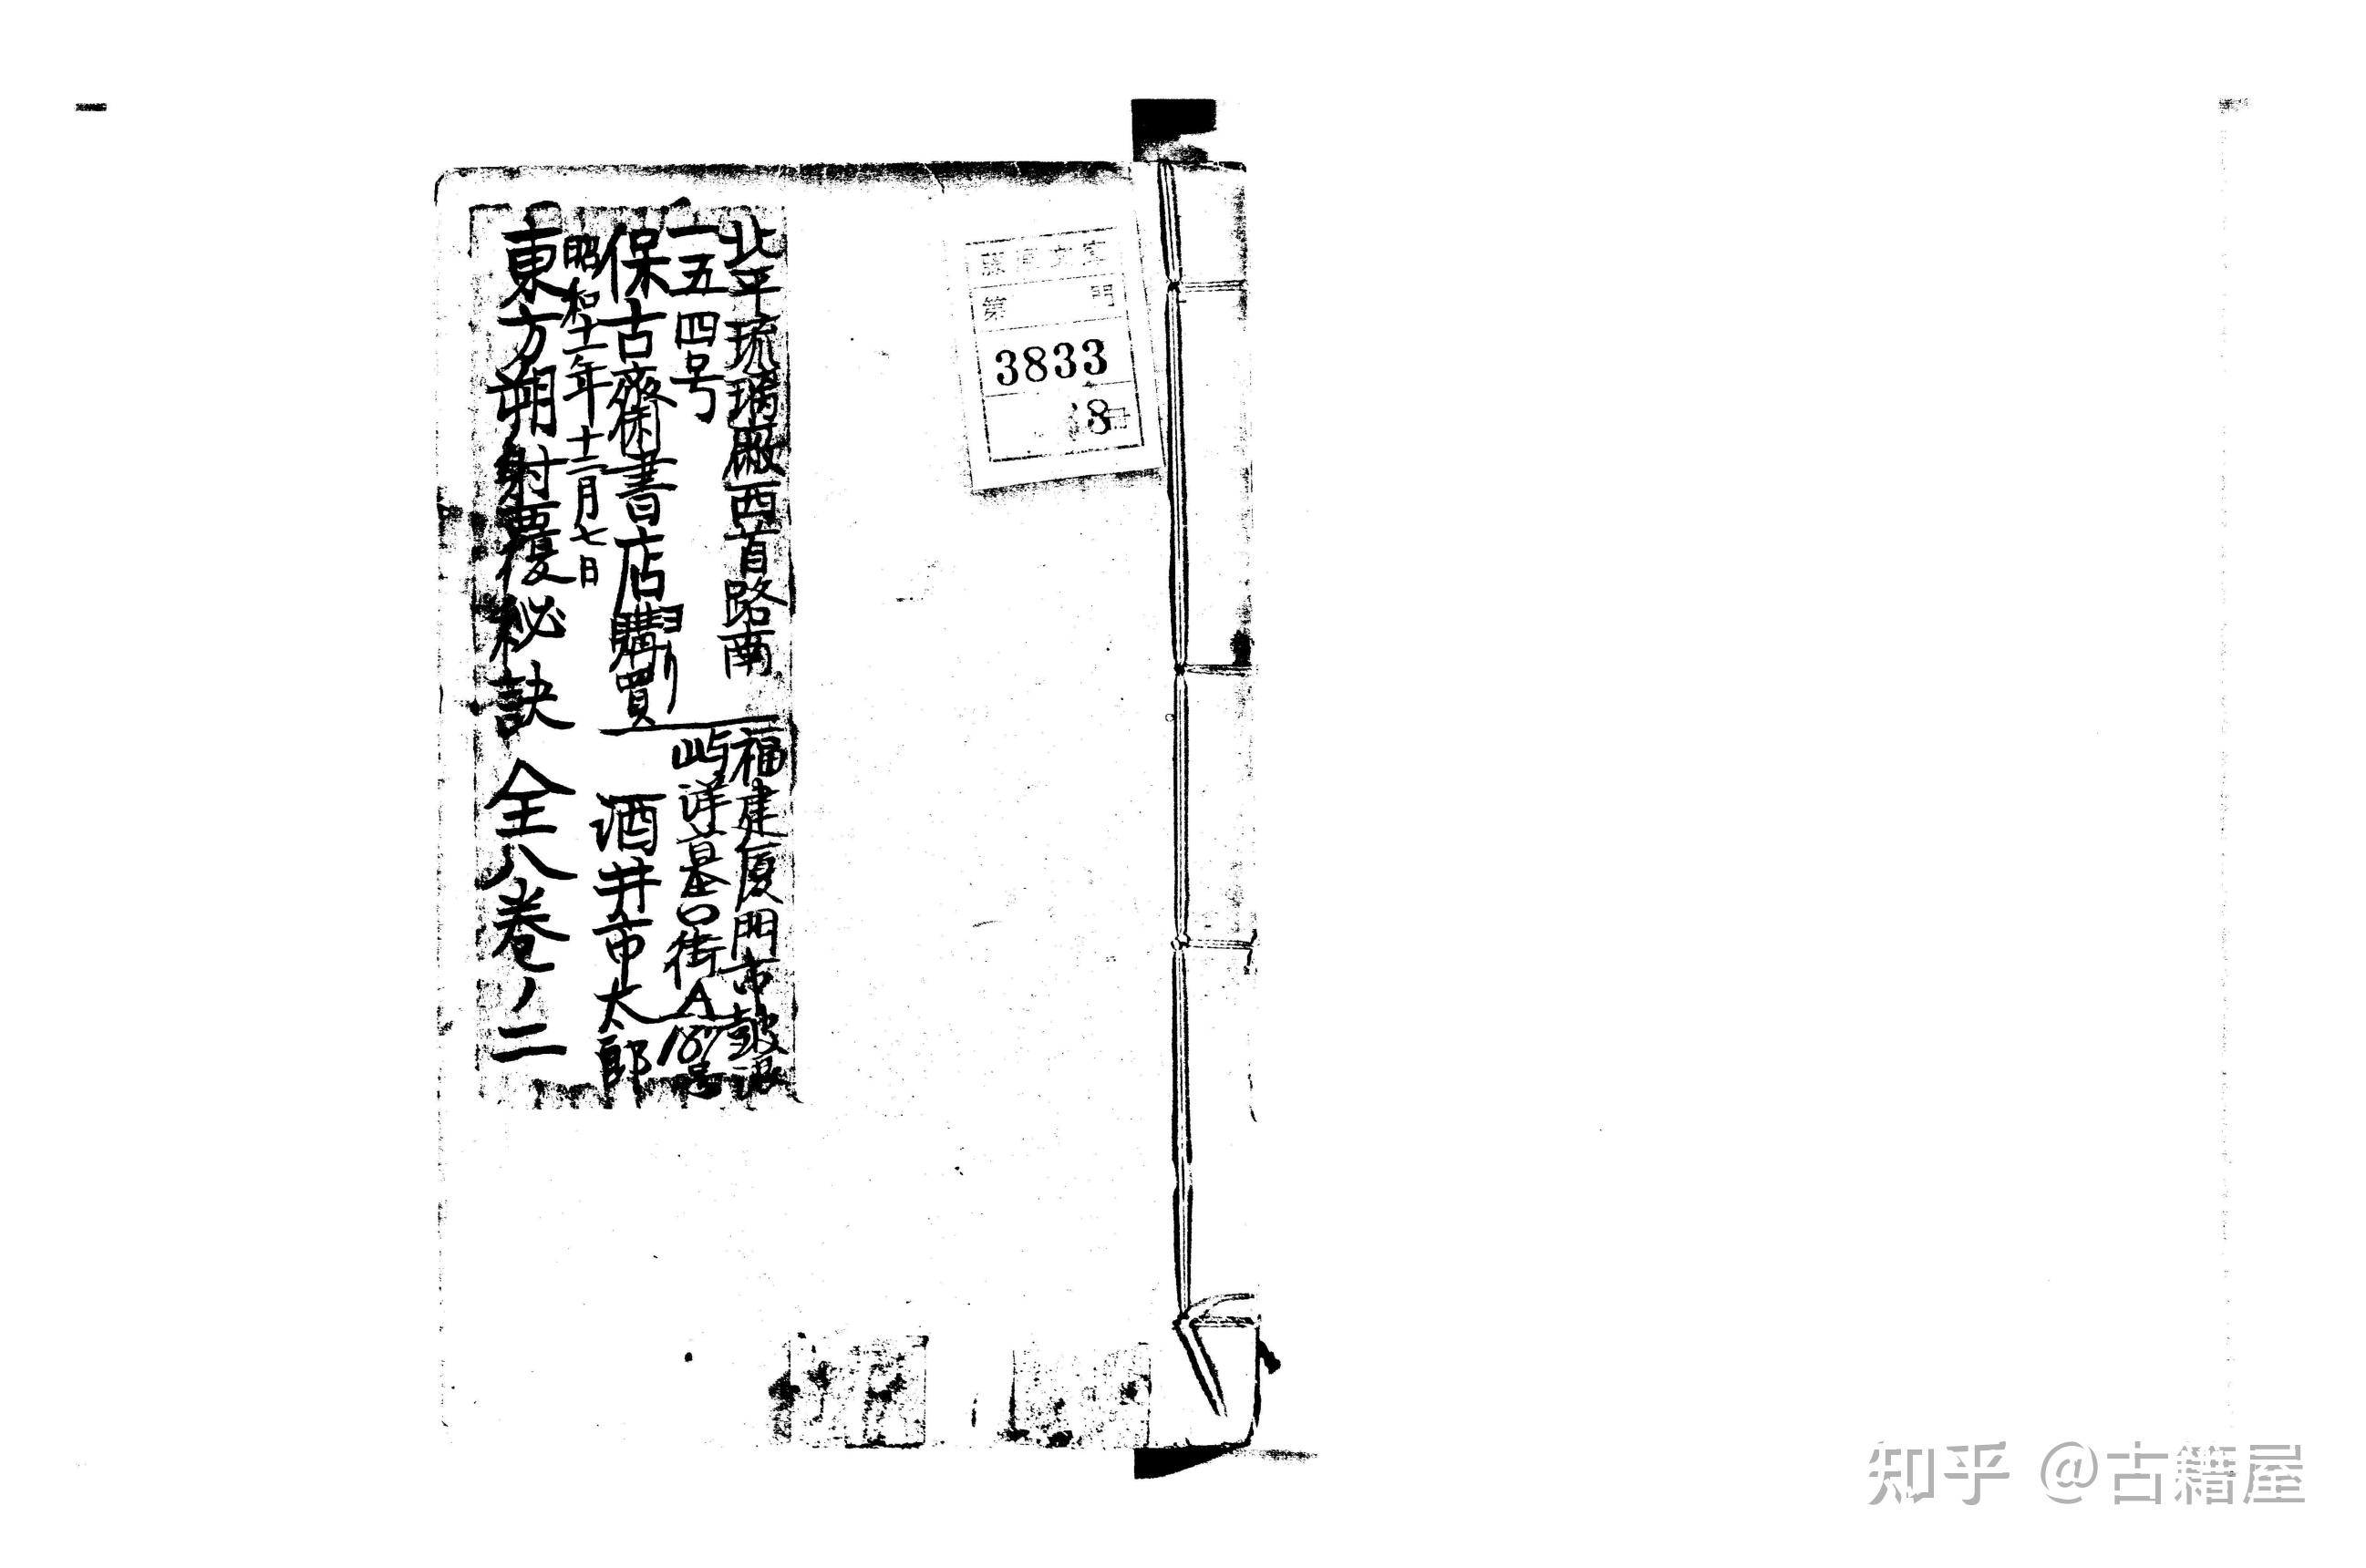 文庫
第 門
3833
8
北平琉璃廠西首路南
一五四号ヨリ
保古齋書店購買
福建厦門市鼓浪
屿洋墓口街A187号
酒井市太郎
昭和十一年十二月七日
東方朔射覆秘訣 全八巻ノ二
知乎 @古籍屋